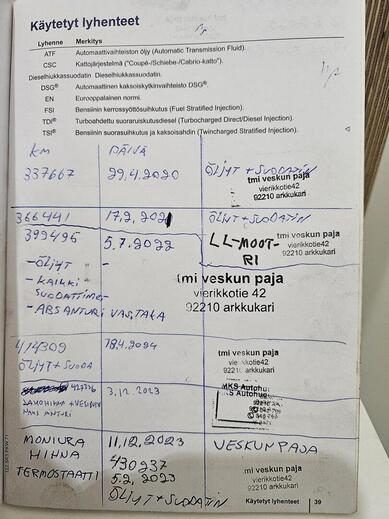 Käytetyt lyhenteet
Lyhenne Merkitys
ATF Automaattivaihteiston öljy (Automatic Transmission Fluid).
CSC Kattojärjestelmä ("Coupé-/Schiebe-/Cabrio-katto").
Dieselhiukkassuodatin Dieselhiukkassuodatin.
DSG® Automaattinen kaksoiskytkinvaihteisto DSG®.
EN Eurooppalainen normi.
FSI Bensiinin kerrossyöttösuihkutus (Fuel Stratified Injection).
TDI® Turboahdettu suoraruiskutusdiesel (Turbocharged Direct/Diesel Injection).
TSI® Bensiinin suorasuihkutus ja kaksoisahdin (Twincharged Stratified Injection).
KM PÄIVÄ
337667 29.4.2020 ÖLJYT + SUODATIN
tmi veskun paja
vierikkotie42
92210 arkkukari
366441 17.2.2021 ÖLJYT + SUODATIN
399495 5.7.2022 LL-MOOTTORI
tmi veskun paja
vierikkotie42
92210 arkkukari
-ÖLJYT -
-KAIKKI
SUODATTIMET
-ABS ANTURI VAS. TAKA
tmi veskun paja
vierikkotie 42
92210 arkkukari
414309 18.4.2024
ÖLJYT + SUODA
tmi veskun paja
92210 arkkukari
3.12.2023
MKS Autohuo
MONIURA 11.12.2023 VESKUN PAJA
HIHNA
430237
TERMOSTAATTI 5.2.2023
ÖLJYT + SUODATIN
tmi veskun paja
vierikkotie42
92210 arkkukari
Käytetyt lyhenteet 39